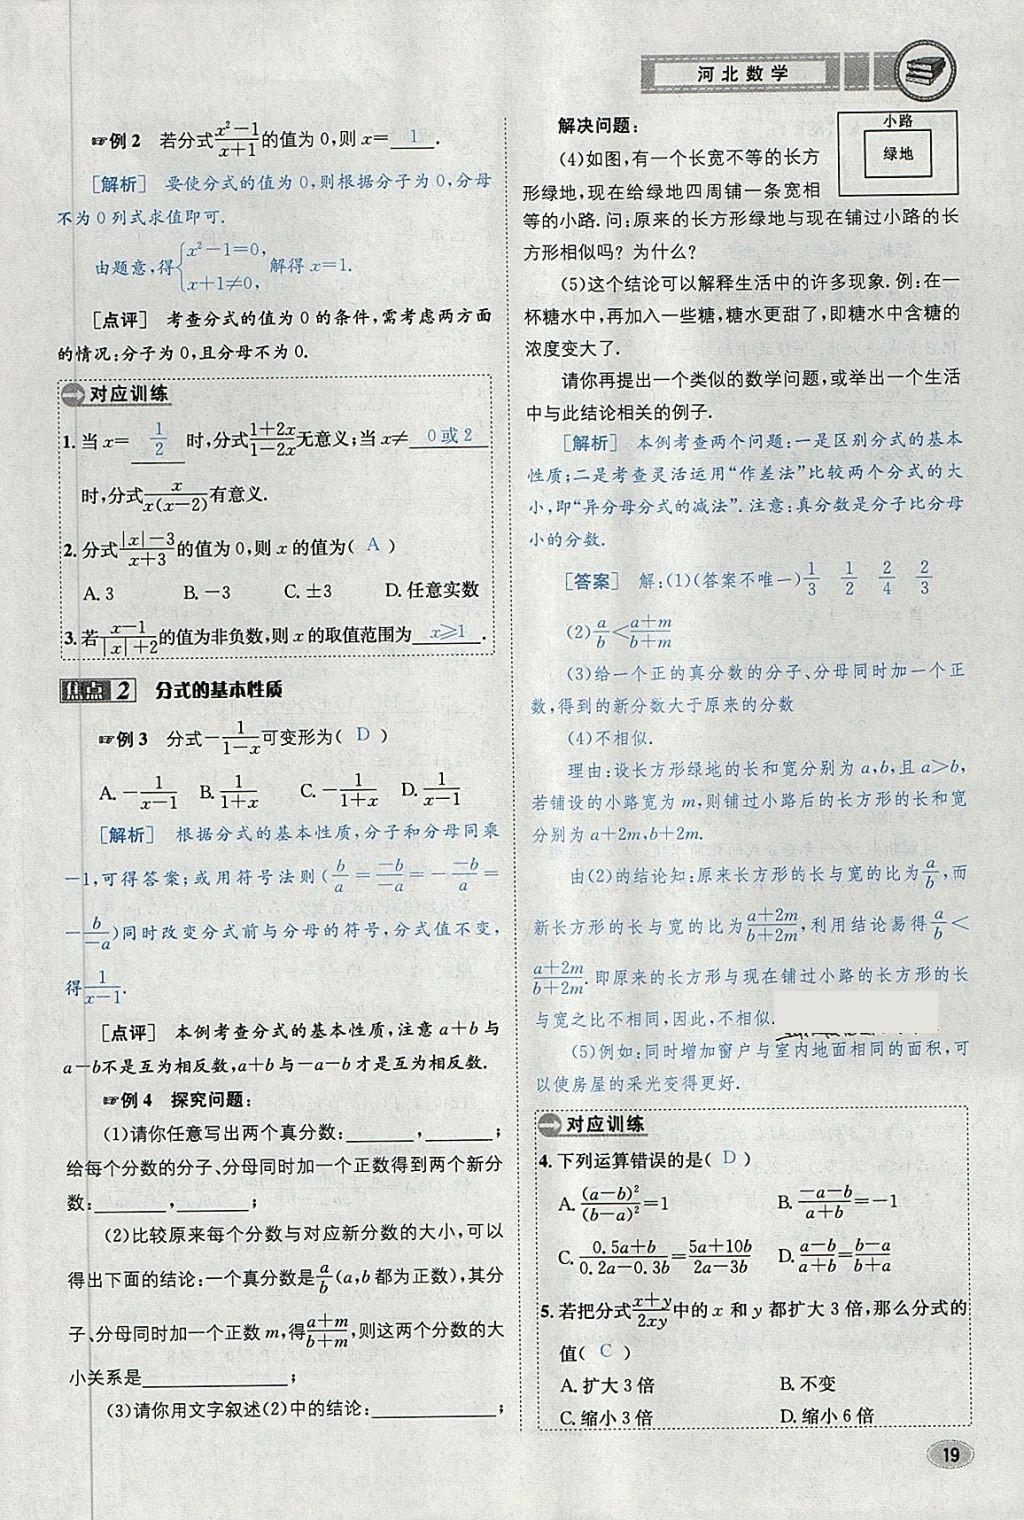 河北数学
☞例2 若分式\frac{x²-1}{x+1}的值为0,则x=  1  .
[解析] 要使分式的值为0,则根据分子为0,分母
不为0列式求值即可.
由题意,得{x²-1=0, x+1≠0, 解得x=1.
[点评] 考查分式的值为0的条件,需考虑两方面
的情况:分子为0,且分母不为0.
对应训练
1.当x= \frac{1}{2} 时,分式\frac{1+2x}{1-2x}无意义;当x≠ 0或2
时,分式\frac{x}{x(x-2)}有意义.
2.分式\frac{|x|-3}{x+3}的值为0,则x的值为( A )
A.3 B.-3 C.±3 D.任意实数
3.若\frac{x-1}{|x|+2}的值为非负数,则x的取值范围为 x≥1 .
焦点2 分式的基本性质
☞例3 分式-\frac{1}{1-x}可变形为( D )
A.-\frac{1}{x-1} B.\frac{1}{1+x} C.-\frac{1}{1+x} D.\frac{1}{x-1}
[解析] 根据分式的基本性质,分子和分母同乘
-1,可得答案;或用符号法则(\frac{b}{a}=\frac{-b}{-a}=-\frac{-b}{a}=
-\frac{b}{-a})同时改变分式前与分母的符号,分式值不变,
得\frac{1}{x-1}.
[点评] 本例考查分式的基本性质,注意a+b与
a-b不是互为相反数,a+b与-a-b才是互为相反数.
☞例4 探究问题:
(1)请你任意写出两个真分数:______,______;
给每个分数的分子、分母同时加一个正数得到两个新分
数:______,______;
(2)比较原来每个分数与对应新分数的大小,可以
得出下面的结论:一个真分数是\frac{a}{b}(a,b都为正数),其分
子、分母同时加一个正数m,得\frac{a+m}{b+m},则这两个分数的大
小关系是____________;
(3)请你用文字叙述(2)中的结论:____________;
解决问题:
小路
绿地
(4)如图,有一个长宽不等的长方
形绿地,现在给绿地四周铺一条宽相
等的小路.问:原来的长方形绿地与现在铺过小路的长
方形相似吗?为什么?
(5)这个结论可以解释生活中的许多现象.例:在一
杯糖水中,再加入一些糖,糖水更甜了,即糖水中含糖的
浓度变大了.
请你再提出一个类似的数学问题,或举出一个生活
中与此结论相关的例子.
[解析] 本例考查两个问题:一是区别分式的基本
性质;二是考查灵活运用“作差法”比较两个分式的大
小,即“异分母分式的减法”.注意:真分数是分子比分母
小的分数.
[答案] 解:(1)(答案不唯一)\frac{1}{3} \frac{1}{2} \frac{2}{4} \frac{2}{3}
(2)\frac{a}{b}<\frac{a+m}{b+m}
(3)给一个正的真分数的分子、分母同时加一个正
数,得到的新分数大于原来的分数
(4)不相似.
理由:设长方形绿地的长和宽分别为a,b,且a>b,
若铺设的小路宽为m,则铺过小路后的长方形的长和宽
分别为a+2m,b+2m.
由(2)的结论知:原来长方形的长与宽的比为\frac{a}{b},而
新长方形的长与宽的比为\frac{a+2m}{b+2m},利用结论易得\frac{a}{b}<
\frac{a+2m}{b+2m}.即原来的长方形与现在铺过小路的长方形的长
与宽之比不相同,因此,不相似.
(5)例如:同时增加窗户与室内地面相同的面积,可
以使房屋的采光变得更好.
对应训练
4.下列运算错误的是( D )
A.\frac{(a-b)²}{(b-a)²}=1 B.\frac{-a-b}{a+b}=-1
C.\frac{0.5a+b}{0.2a-0.3b}=\frac{5a+10b}{2a-3b} D.\frac{a-b}{a+b}=\frac{b-a}{b+a}
5.若把分式\frac{x+y}{2xy}中的x和y都扩大3倍,那么分式的
值( C )
A.扩大3倍 B.不变
C.缩小3倍 D.缩小6倍
19